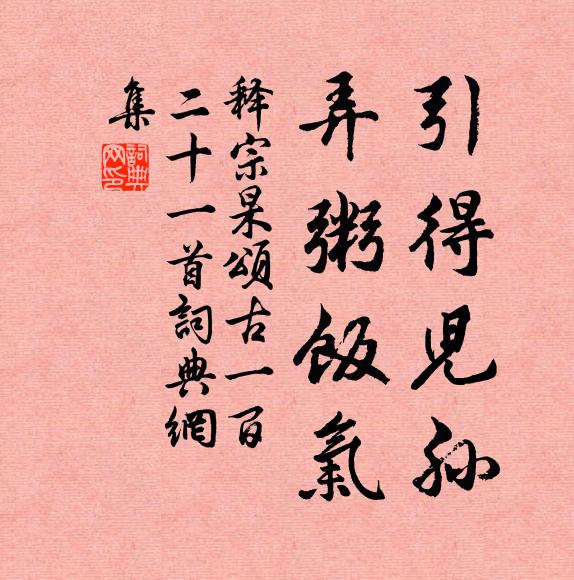 引得児孙
弄粥飯氣
释宗杲頌古一百
二十一首詞典網
集
詞典網印